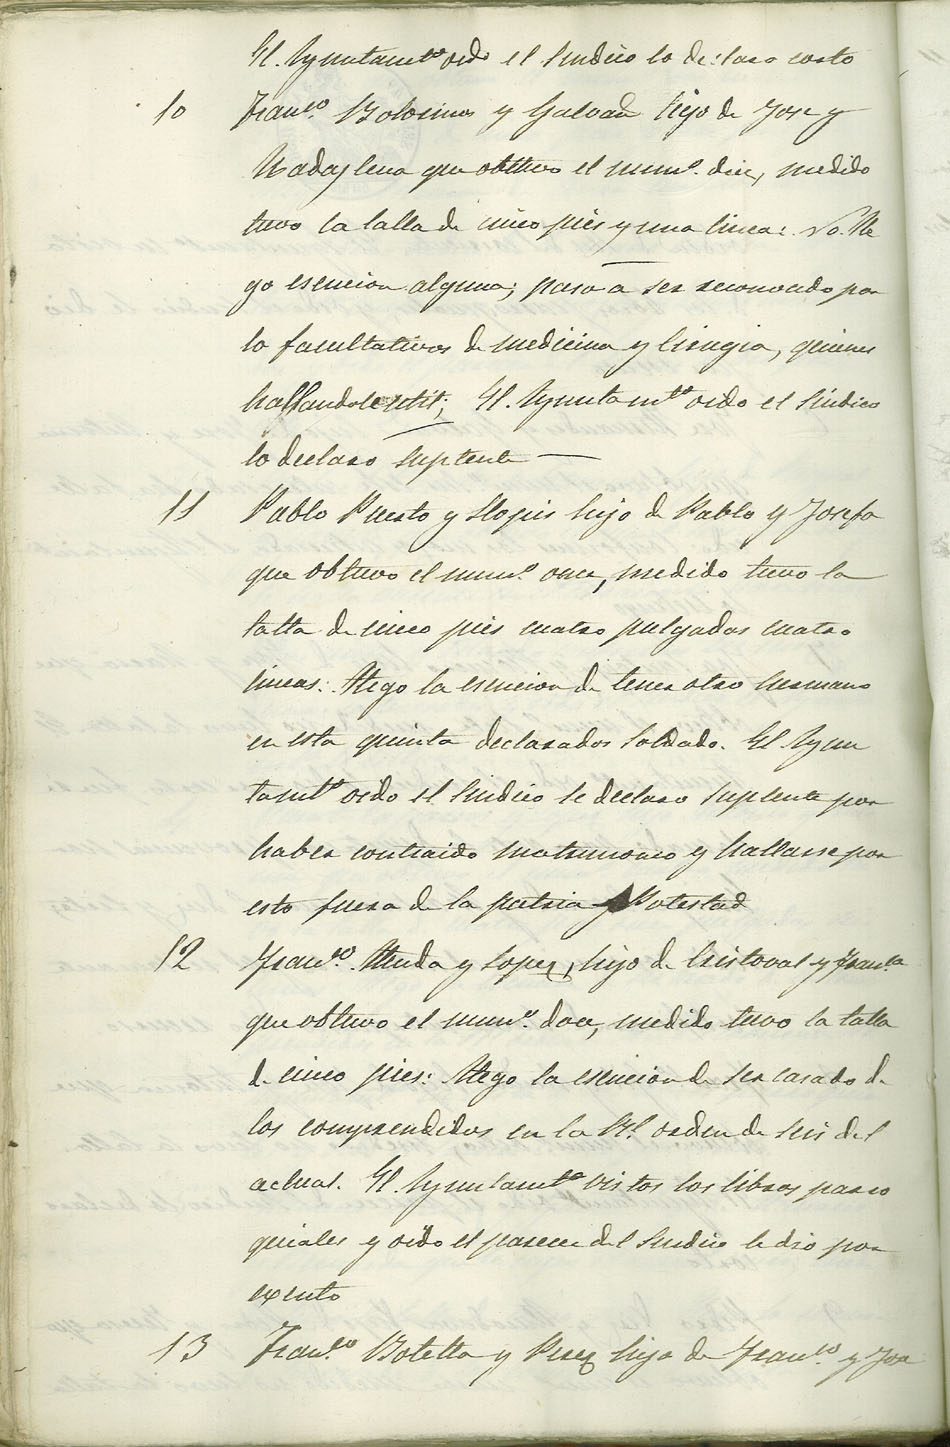 El Ayuntamto oido el Sindico lo declaro corto
10 Franco. Bolosinos y Galvañ hijo de Jose y
Madaglena que obtuvo el numo. diez, medido
tuvo la talla de cinco pies y una linea: No alle
go esencion alguna; paso a ser reconocido por
lo facultativos de medicina y Cirugia, quienes
hallandole util; El Ayuntamto oido el Sindico
lo declaro Suplente —
11 Pablo Puerto y Llopis hijo de Pablo y Josefa
que obtuvo el numo once, medido tuvo la
talla de cinco pies cuatro pulgadas cuatro
lineas: Alego la esencion de tener otro hermano
en esta quinta declarados Soldado. El Ayun
tamto oido el Sindico le declaro Suplente por
haber contraido matrimonio y hallarse por
esto fuera de la patria Potestad
12 Franco. y Lopez, hijo de Cristoval y Franca
que obtuvo el numo. doce, medido tuvo la talla
de cinco pies: Alego la esencion de ser casado de
los comprendidos en la Rl. orden de Seis del
actual. El Ayuntamto vistos los libros parro
quiales y oido el parecer del Sindico le dio por
exento
13 Franco. Botella y Perez hijo de Franco. y Jose